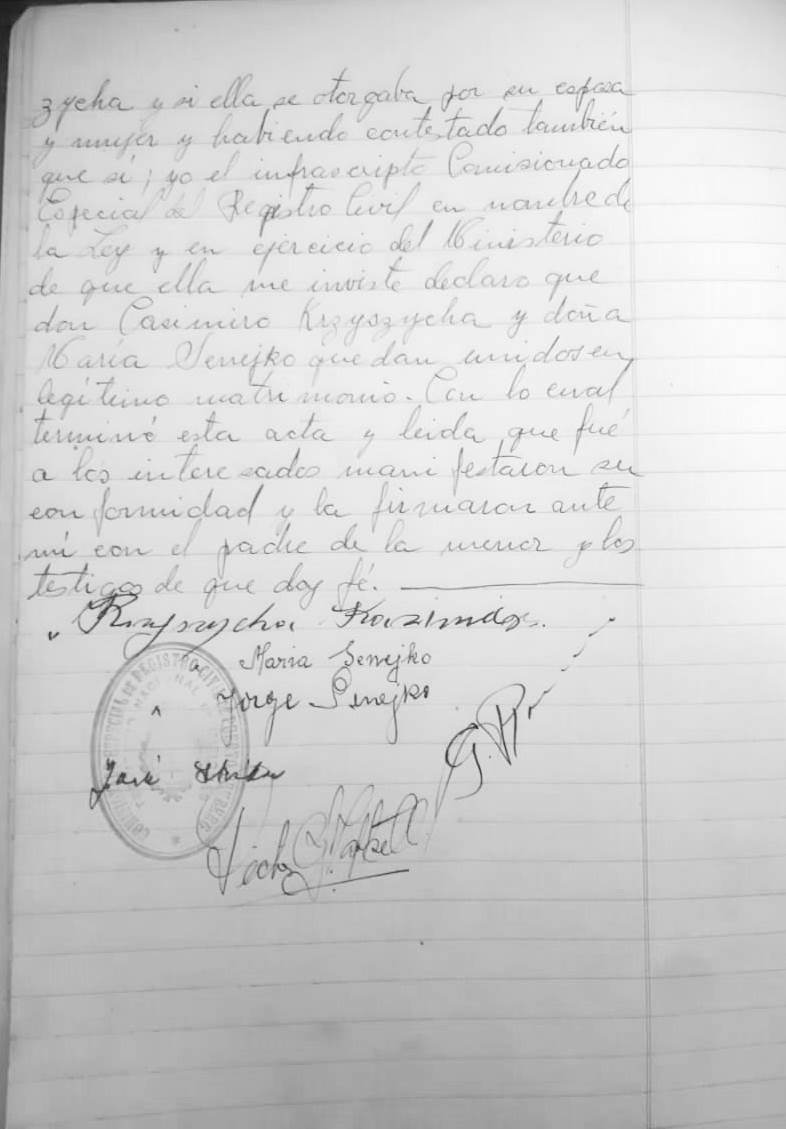 zycha y si ella se otorgaba por su esposa
y mujer y habiendo contestado también
que sí; yo el infrascripto Comisionado
Especial del Registro Civil en nombre de
la Ley y en ejercicio del Ministerio
de que ella me inviste declaro que
don Casimiro Krzyszycha y doña
María Senejko quedan unidos en
legítimo matrimonio. Con lo cual
terminó esta acta y leida que fué
a los interesados manifestaron su
conformidad y la firmaron ante
mí con el padre de la menor y los
testigos de que doy fé.
Krzyszycha Kazimierz.
Maria Senejko
Jorge Senejko
José
REGISTRO CIVIL